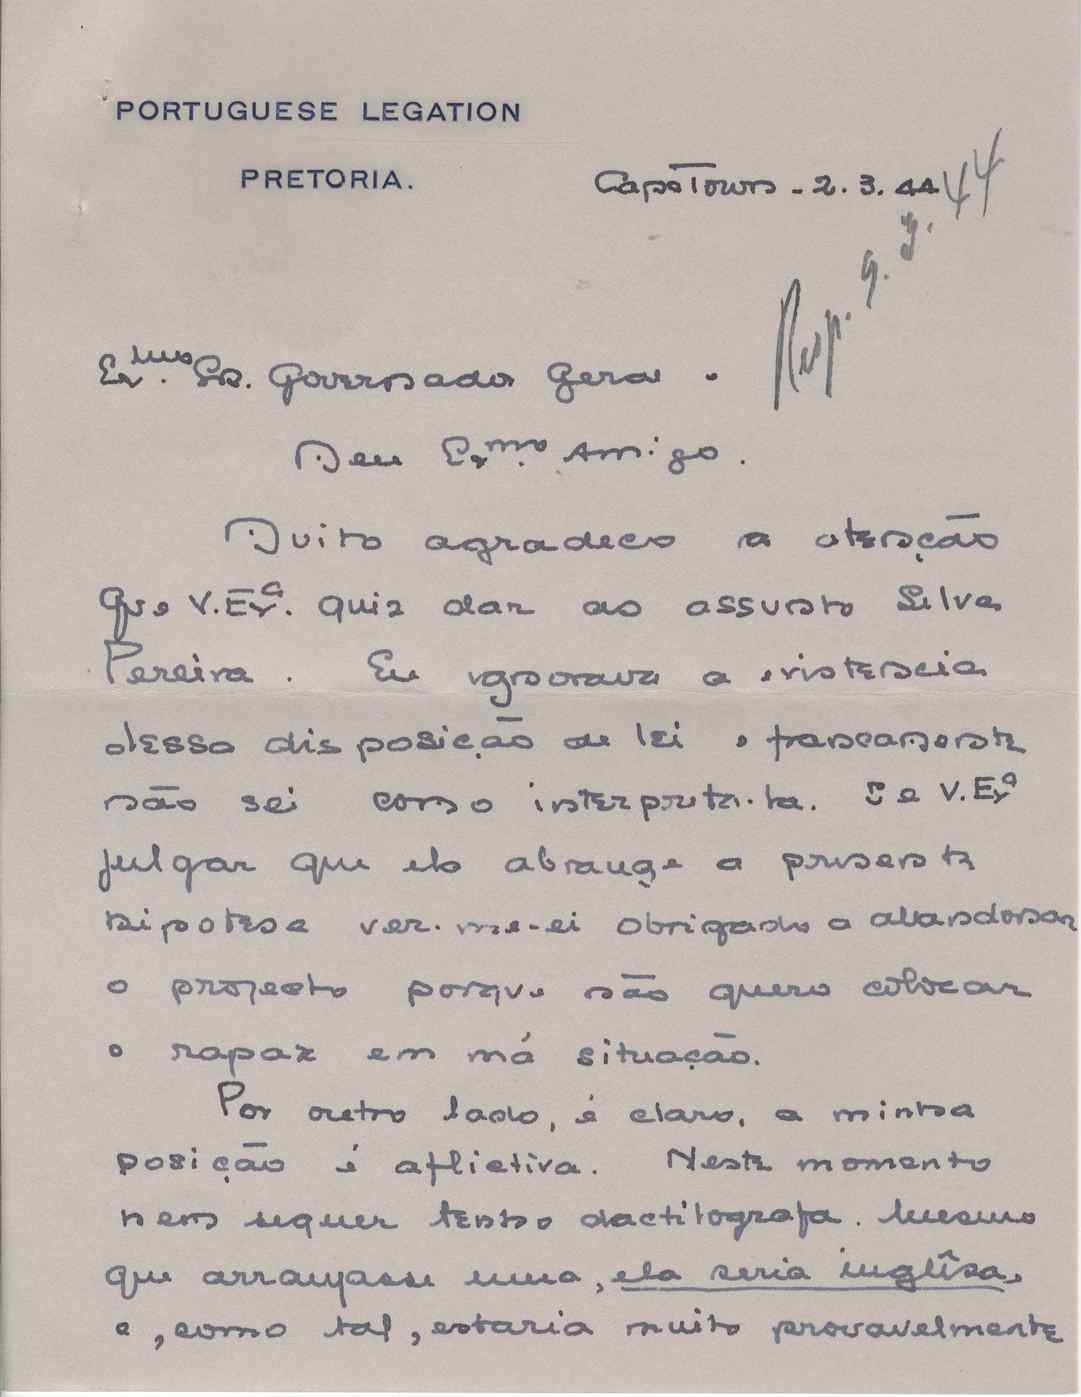 PORTUGUESE LEGATION
PRETORIA.
CapeTown - 2.3.44
44
Resp. 9.3.
Exmo. Sr. Governador Geral.
Meu Exmo. Amigo.
Muito agradeco a atenção
que V.Exª. quiz dar ao assunto Silva
Pereira. Eu ignorava a existencia
dessa disposição de lei e francamente
não sei como interpreta-la. Se V.Exª
julgar que ela abrange a presente
hipotese ver-me-ei obrigado a abandonar
o projecto porque não quero colocar
o rapaz em má situação.
Por outro lado, é claro, a minha
posição é aflictiva. Neste momento
nem sequer tenho dactilografa. Mesmo
que arranjasse uma, ela seria inglêsa,
e, como tal, estaria muito provavelmente